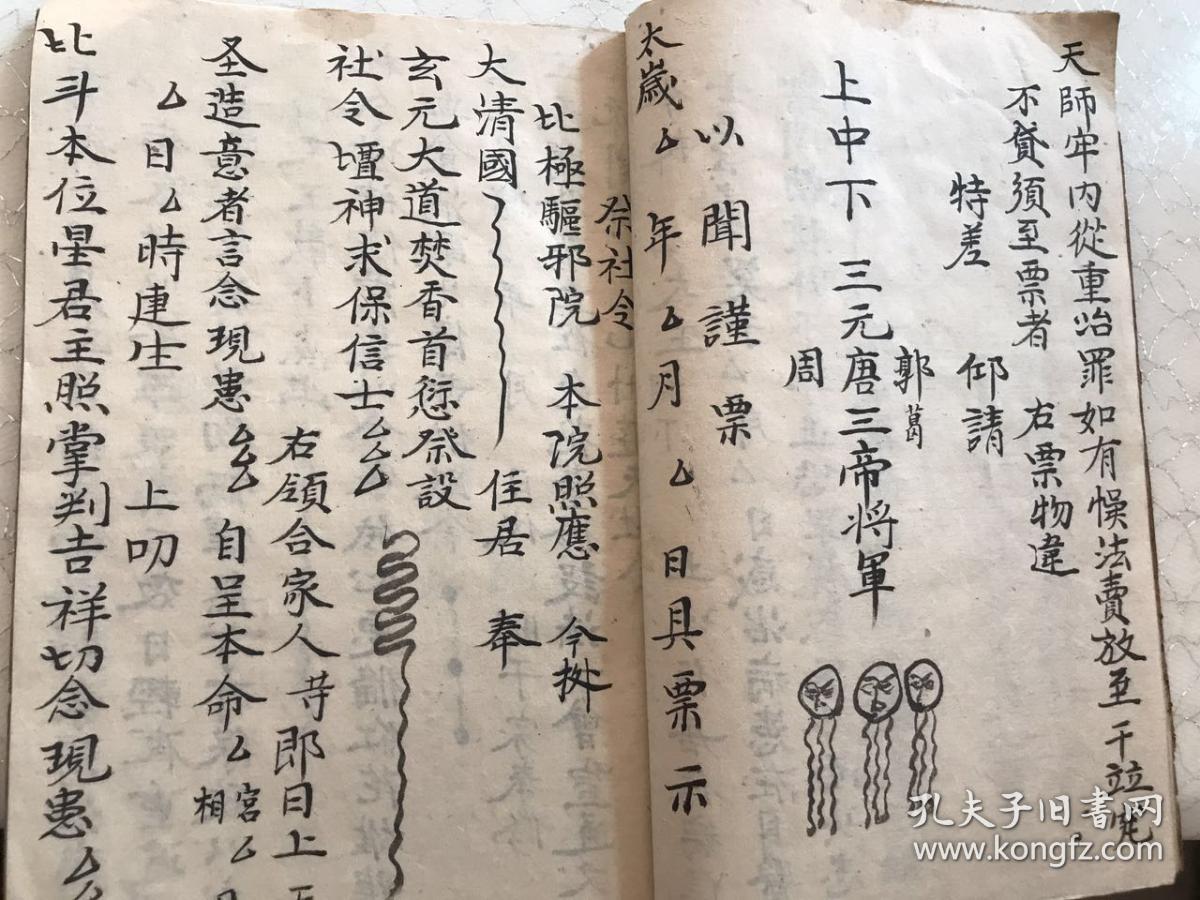 天師牢内從重治罪如有悞法賣放至干竝究
不貸須至票者 右票物違
特差 仰請
郭葛
上中下三元唐三帝将軍
周
以聞謹票
太歲厶年厶月厶日具票示
祭社令
北極驅邪院 本院照應 今拠
大清國 住居 奉
玄元大道焚香首愆祭設
社令壇神求保信士厶厶厶
右領合家人等即日上
圣造意者言念現患厶厶 自呈本命厶宫厶相
厶日厶時建生 上叩
北斗本位星君主照掌判吉祥切念現患厶厶
孔夫子旧书网
www.kongfz.com